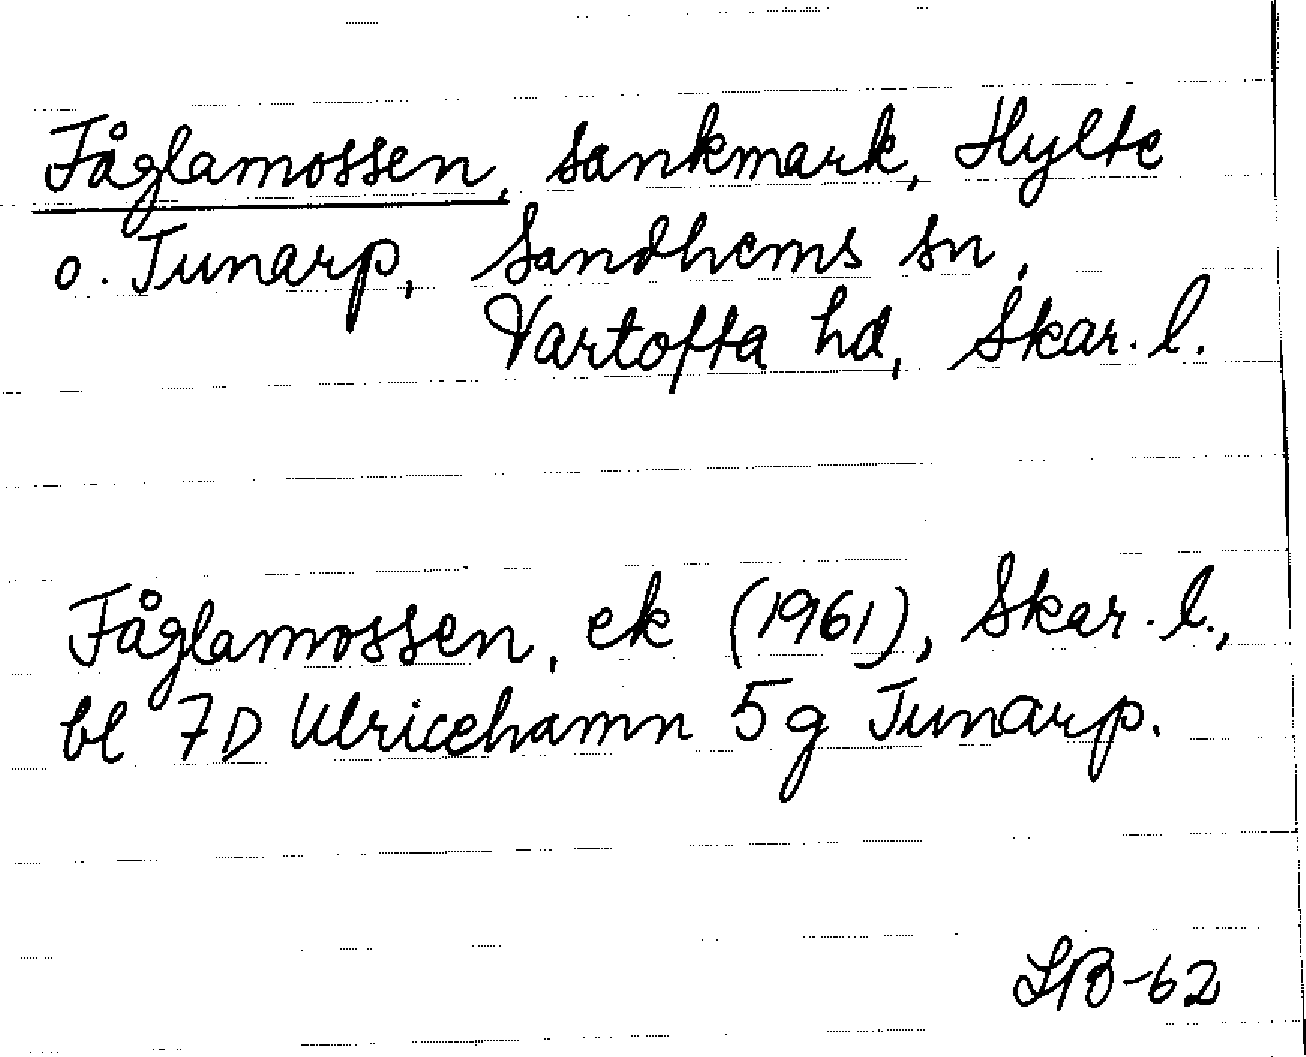 Fåglamossen, sankmark, Hylte
o. Junarp, Sandhems sn,
Vartofta hd, Skar. l.
Fåglamossen, ek (1961), Skar. l.,
bl 7D Ulricehamn 5g Junarp.
LB-62